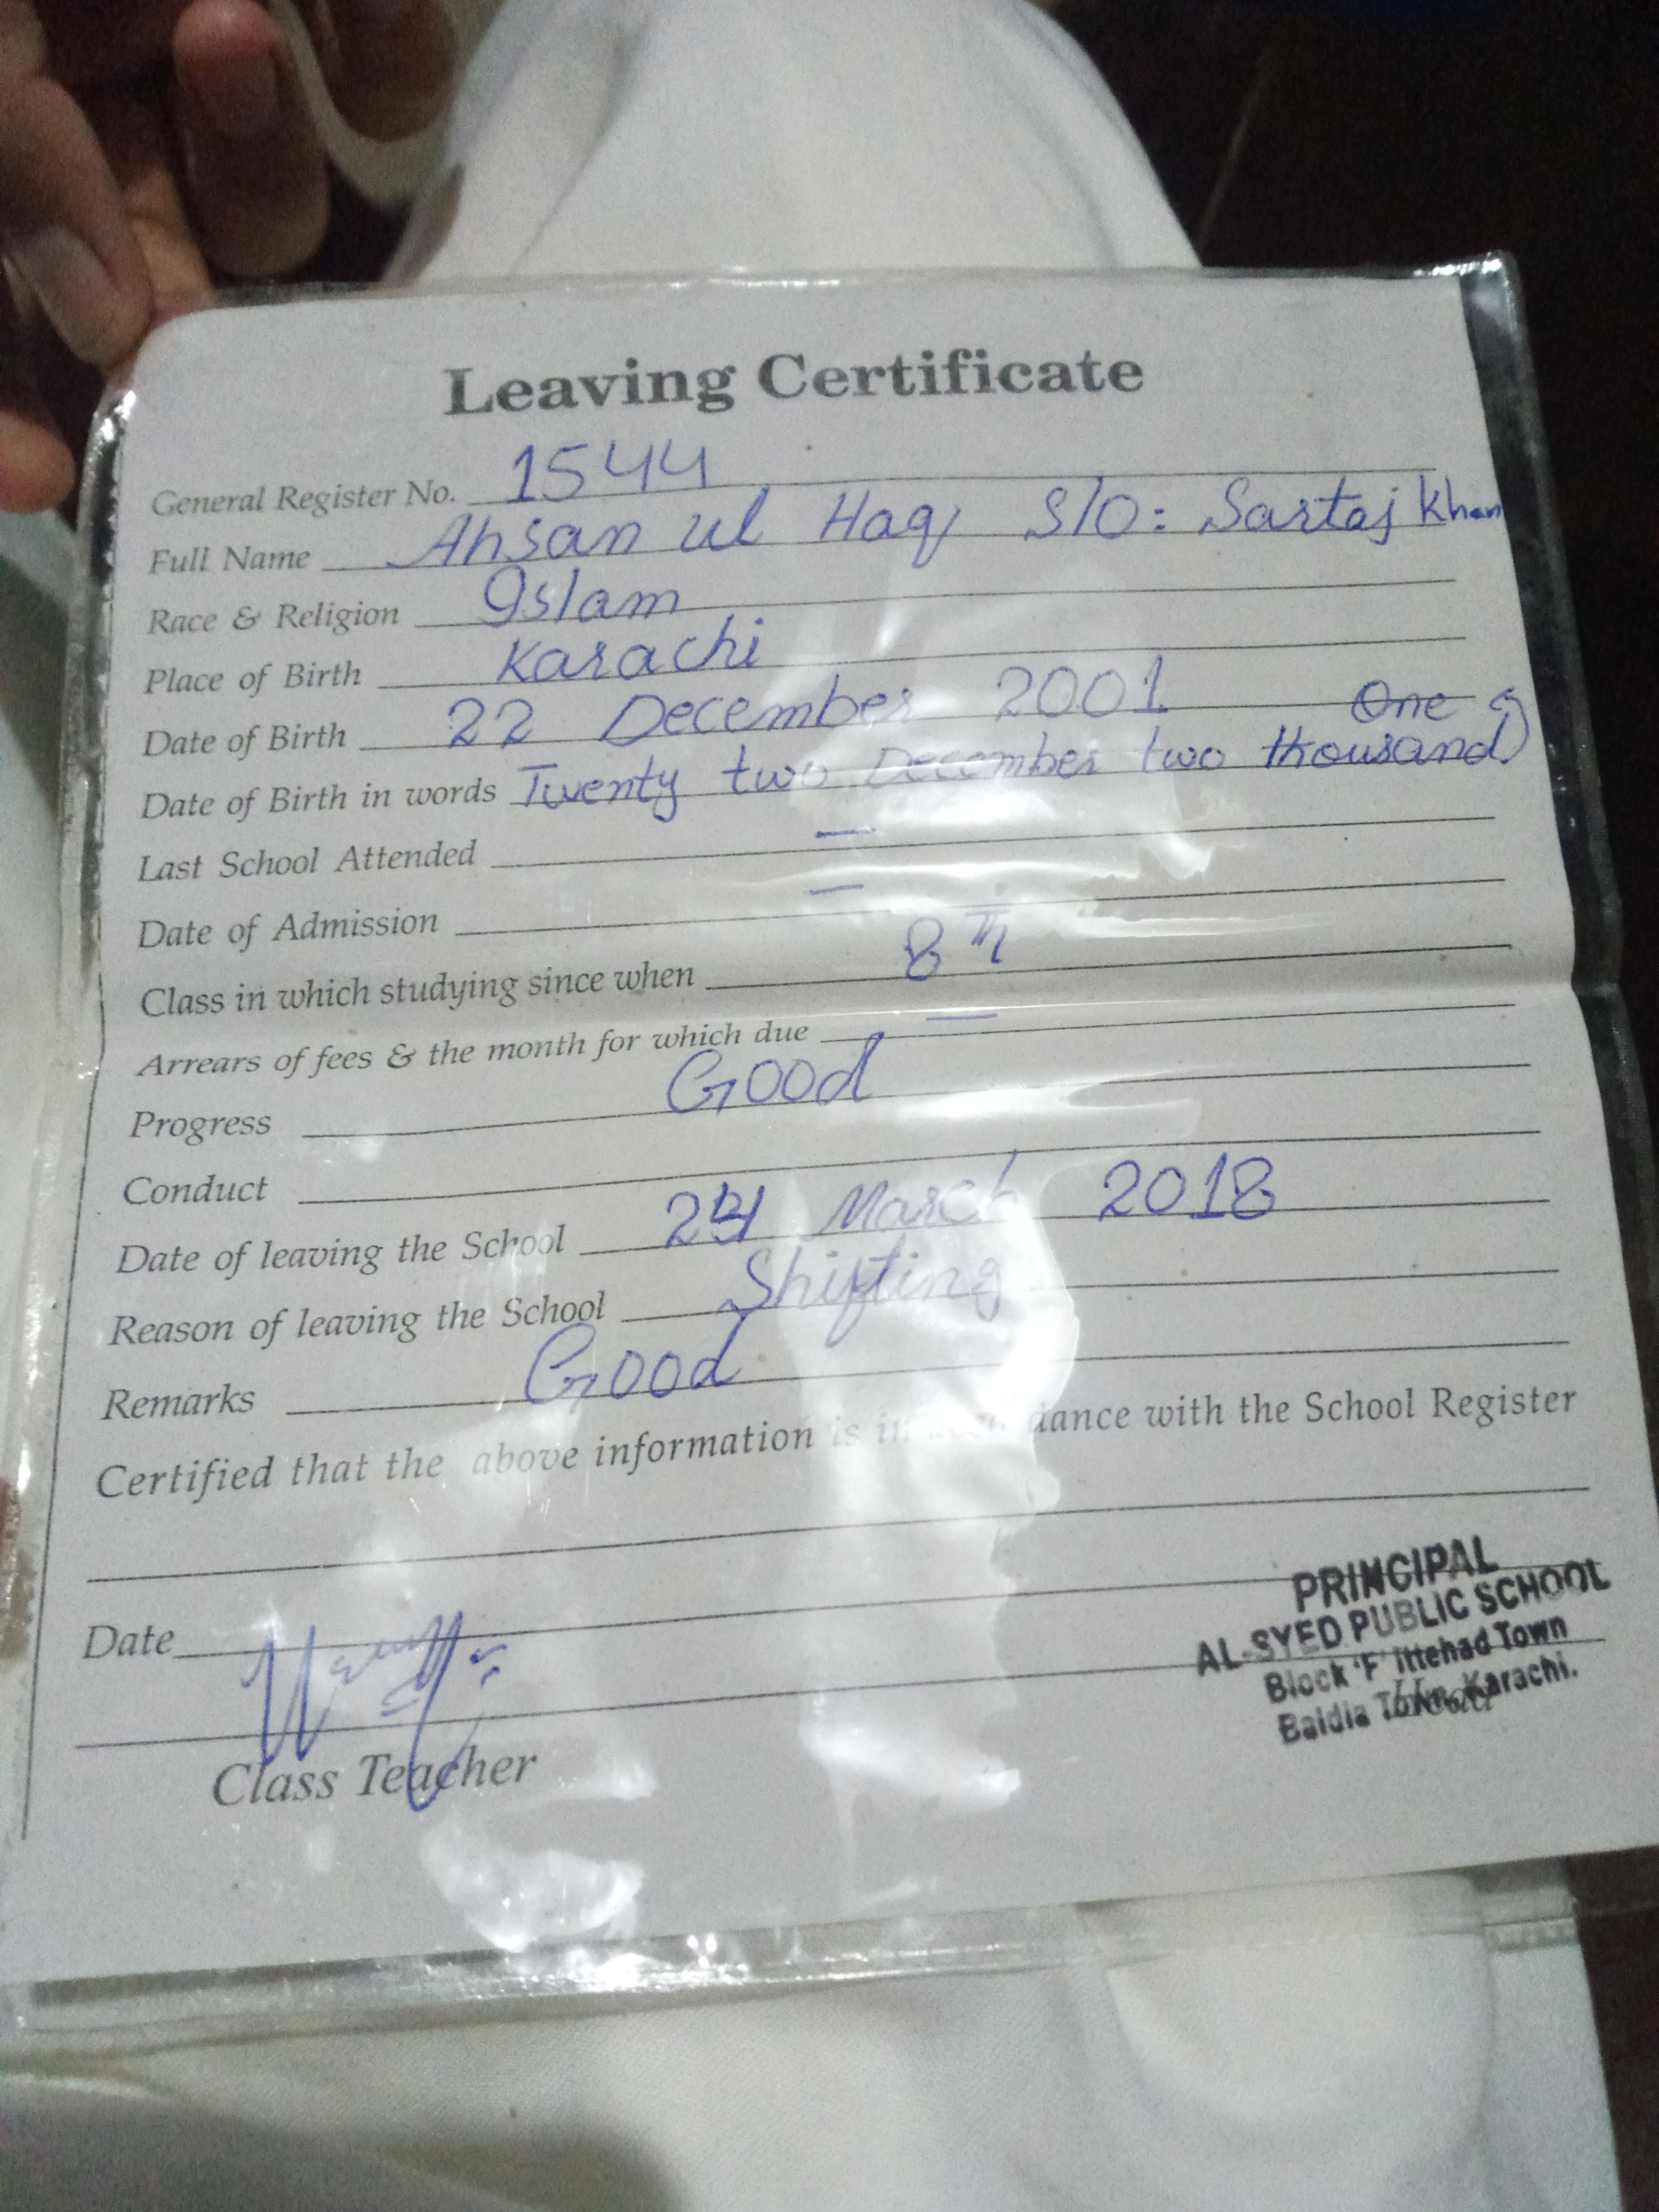 Leaving Certificate
General Register No. 1544
Full Name Ahsan ul Haq S/O: Sartaj Khan
Race & Religion Islam
Place of Birth Karachi
Date of Birth 22 December 2001
Date of Birth in words Twenty two December two thousand One
Last School Attended —
Date of Admission —
Class in which studying since when 8th
Arrears of fees & the month for which due —
Progress Good
Conduct
Date of leaving the School March 2018
Reason of leaving the School Shifting
Remarks Good
Certified that the above information is in dance with the School Register
Date
Class Teacher
PRINCIPAL
AL-SYED PUBLIC SCHOOL
Block 'F' Ittehad Town
Baldia Town, Karachi.